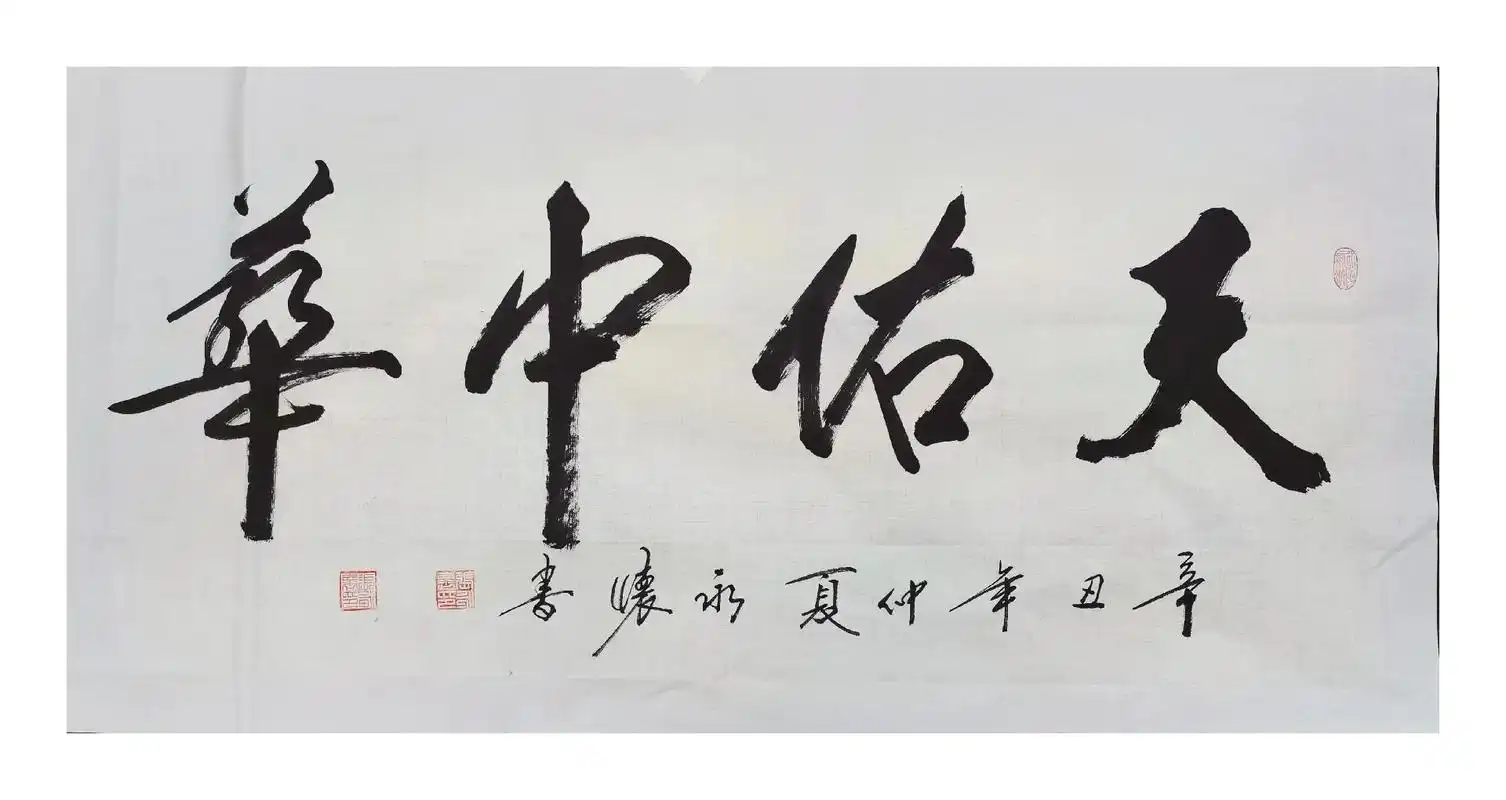 天佑中華
辛丑年仲夏永懷書